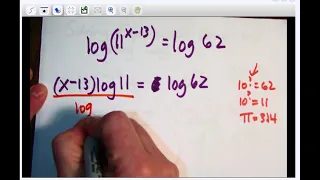 log(11^(x-13)) = log 62
(x-13)log 11 = log 62
log
10^? = 62
10^? = 11
π = 3.14